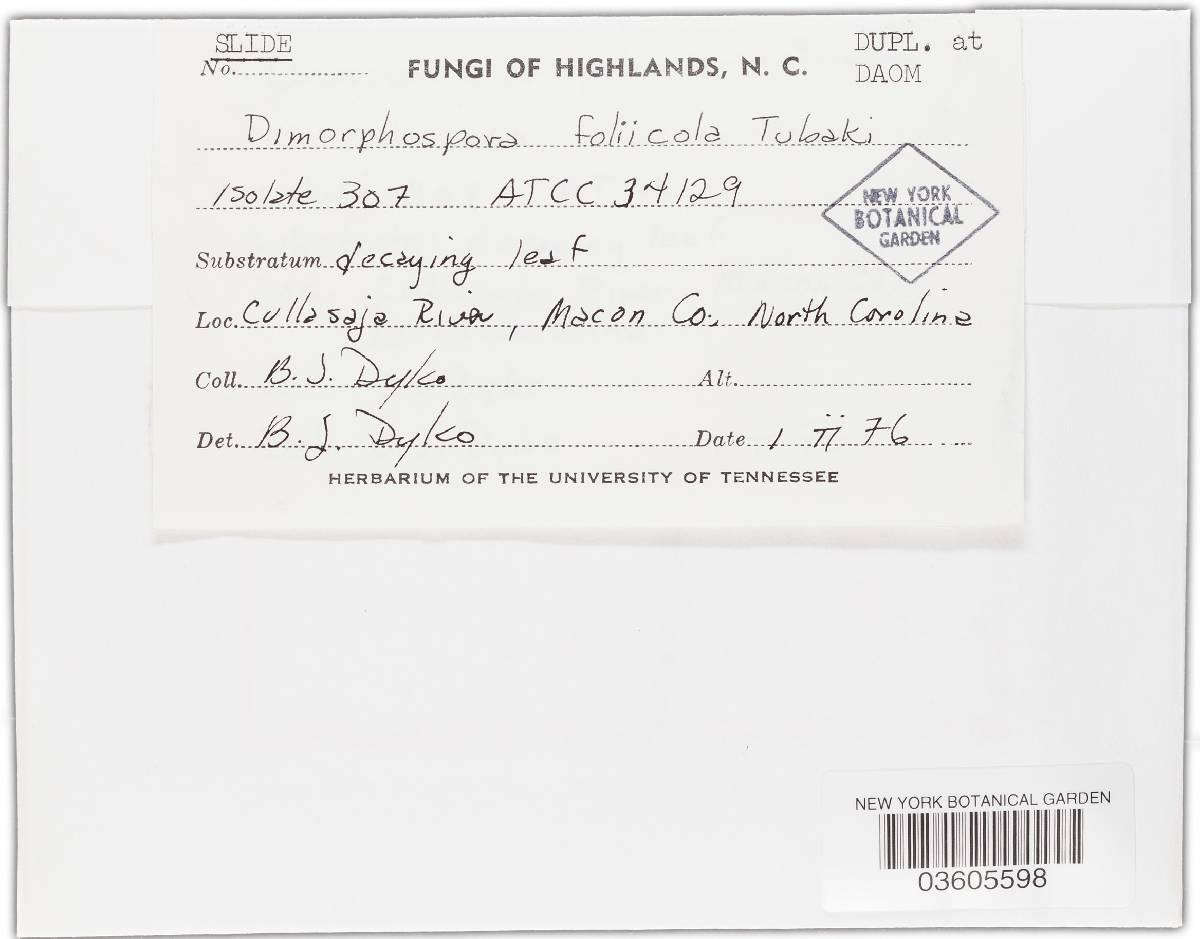 SLIDE
No.
FUNGI OF HIGHLANDS, N. C.
DUPL. at
DAOM
Dimorphospora foliicola Tubaki
Isolate 307 ATCC 34129
NEW YORK
BOTANICAL
GARDEN
Substratum decaying leaf
Loc. Cullasaja River, Macon Co., North Carolina
Coll. B. J. Dyko
Alt.
Det. B. J. Dyko
Date 1 ii 76
HERBARIUM OF THE UNIVERSITY OF TENNESSEE
NEW YORK BOTANICAL GARDEN
03605598